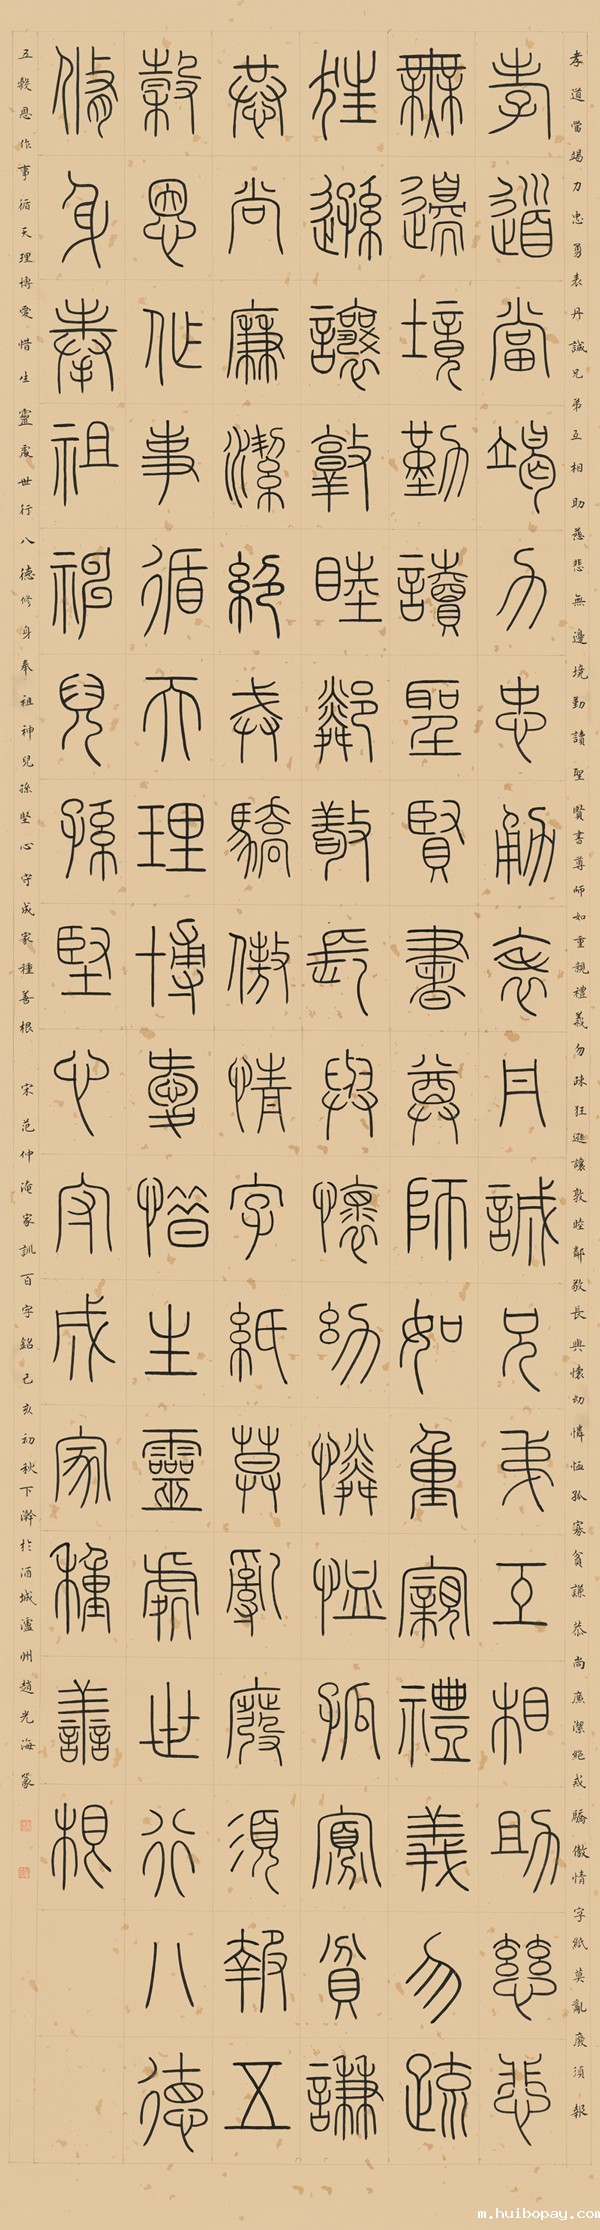 孝道當竭力忠勇表丹誠兄弟互相助慈悲無邊境勤讀聖賢書尊師如重親禮義勿疎狂遜讓敦睦鄰敬長與懷幼憐恤孤寡貧謙恭尚廉潔絕戒驕傲情字紙莫亂廢須報
孝道當竭力忠勇表丹誠兄弟互相助慈悲
無邊境勤讀聖賢書尊師如重親禮義勿疏
狂遜讓敦睦鄰敬長與懷幼憐恤孤寡貧謙
恭尚廉潔絕戒驕傲情字紙莫亂廢須報五
穀恩作事循天理博愛惜生靈處世行八德
修身奉祖神兒孫堅心守成家種善根
五穀恩作事循天理博愛惜生靈處世行八德修身奉祖神兒孫堅心守成家種善根 宋范仲淹家訓百字銘己亥初秋下澣於酒城瀘州趙光海篆
m.huibopay.com